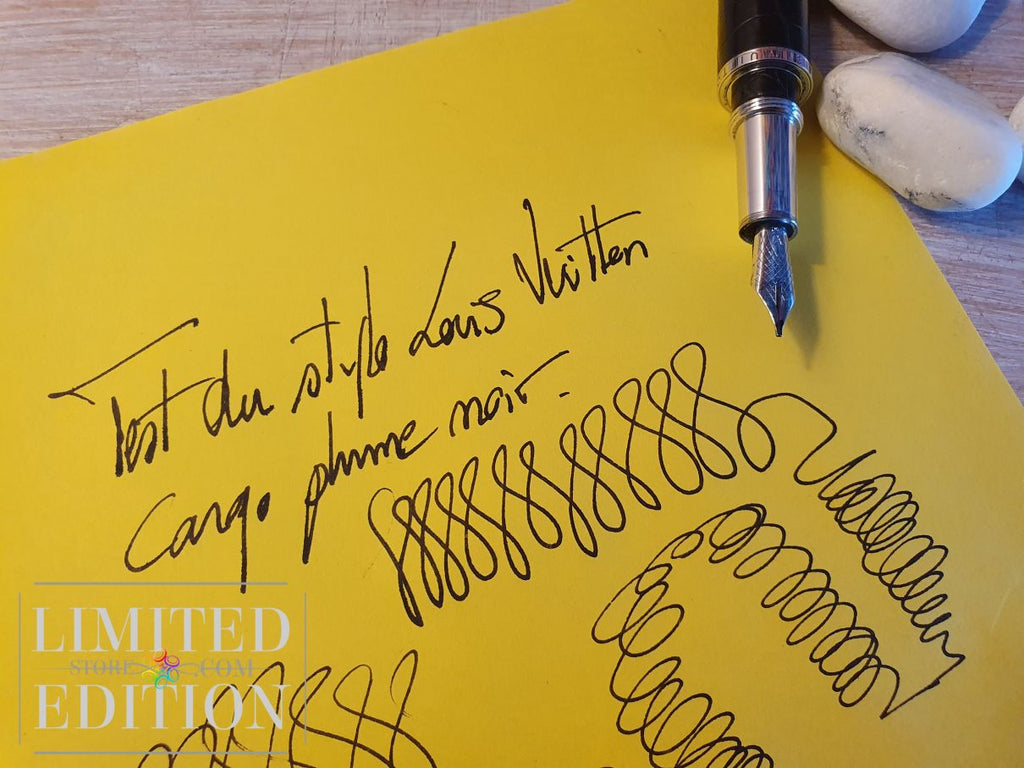 Test du stylo Louis Vuitton
Cargo plume noir.
LIMITED
STORE .COM
EDITION